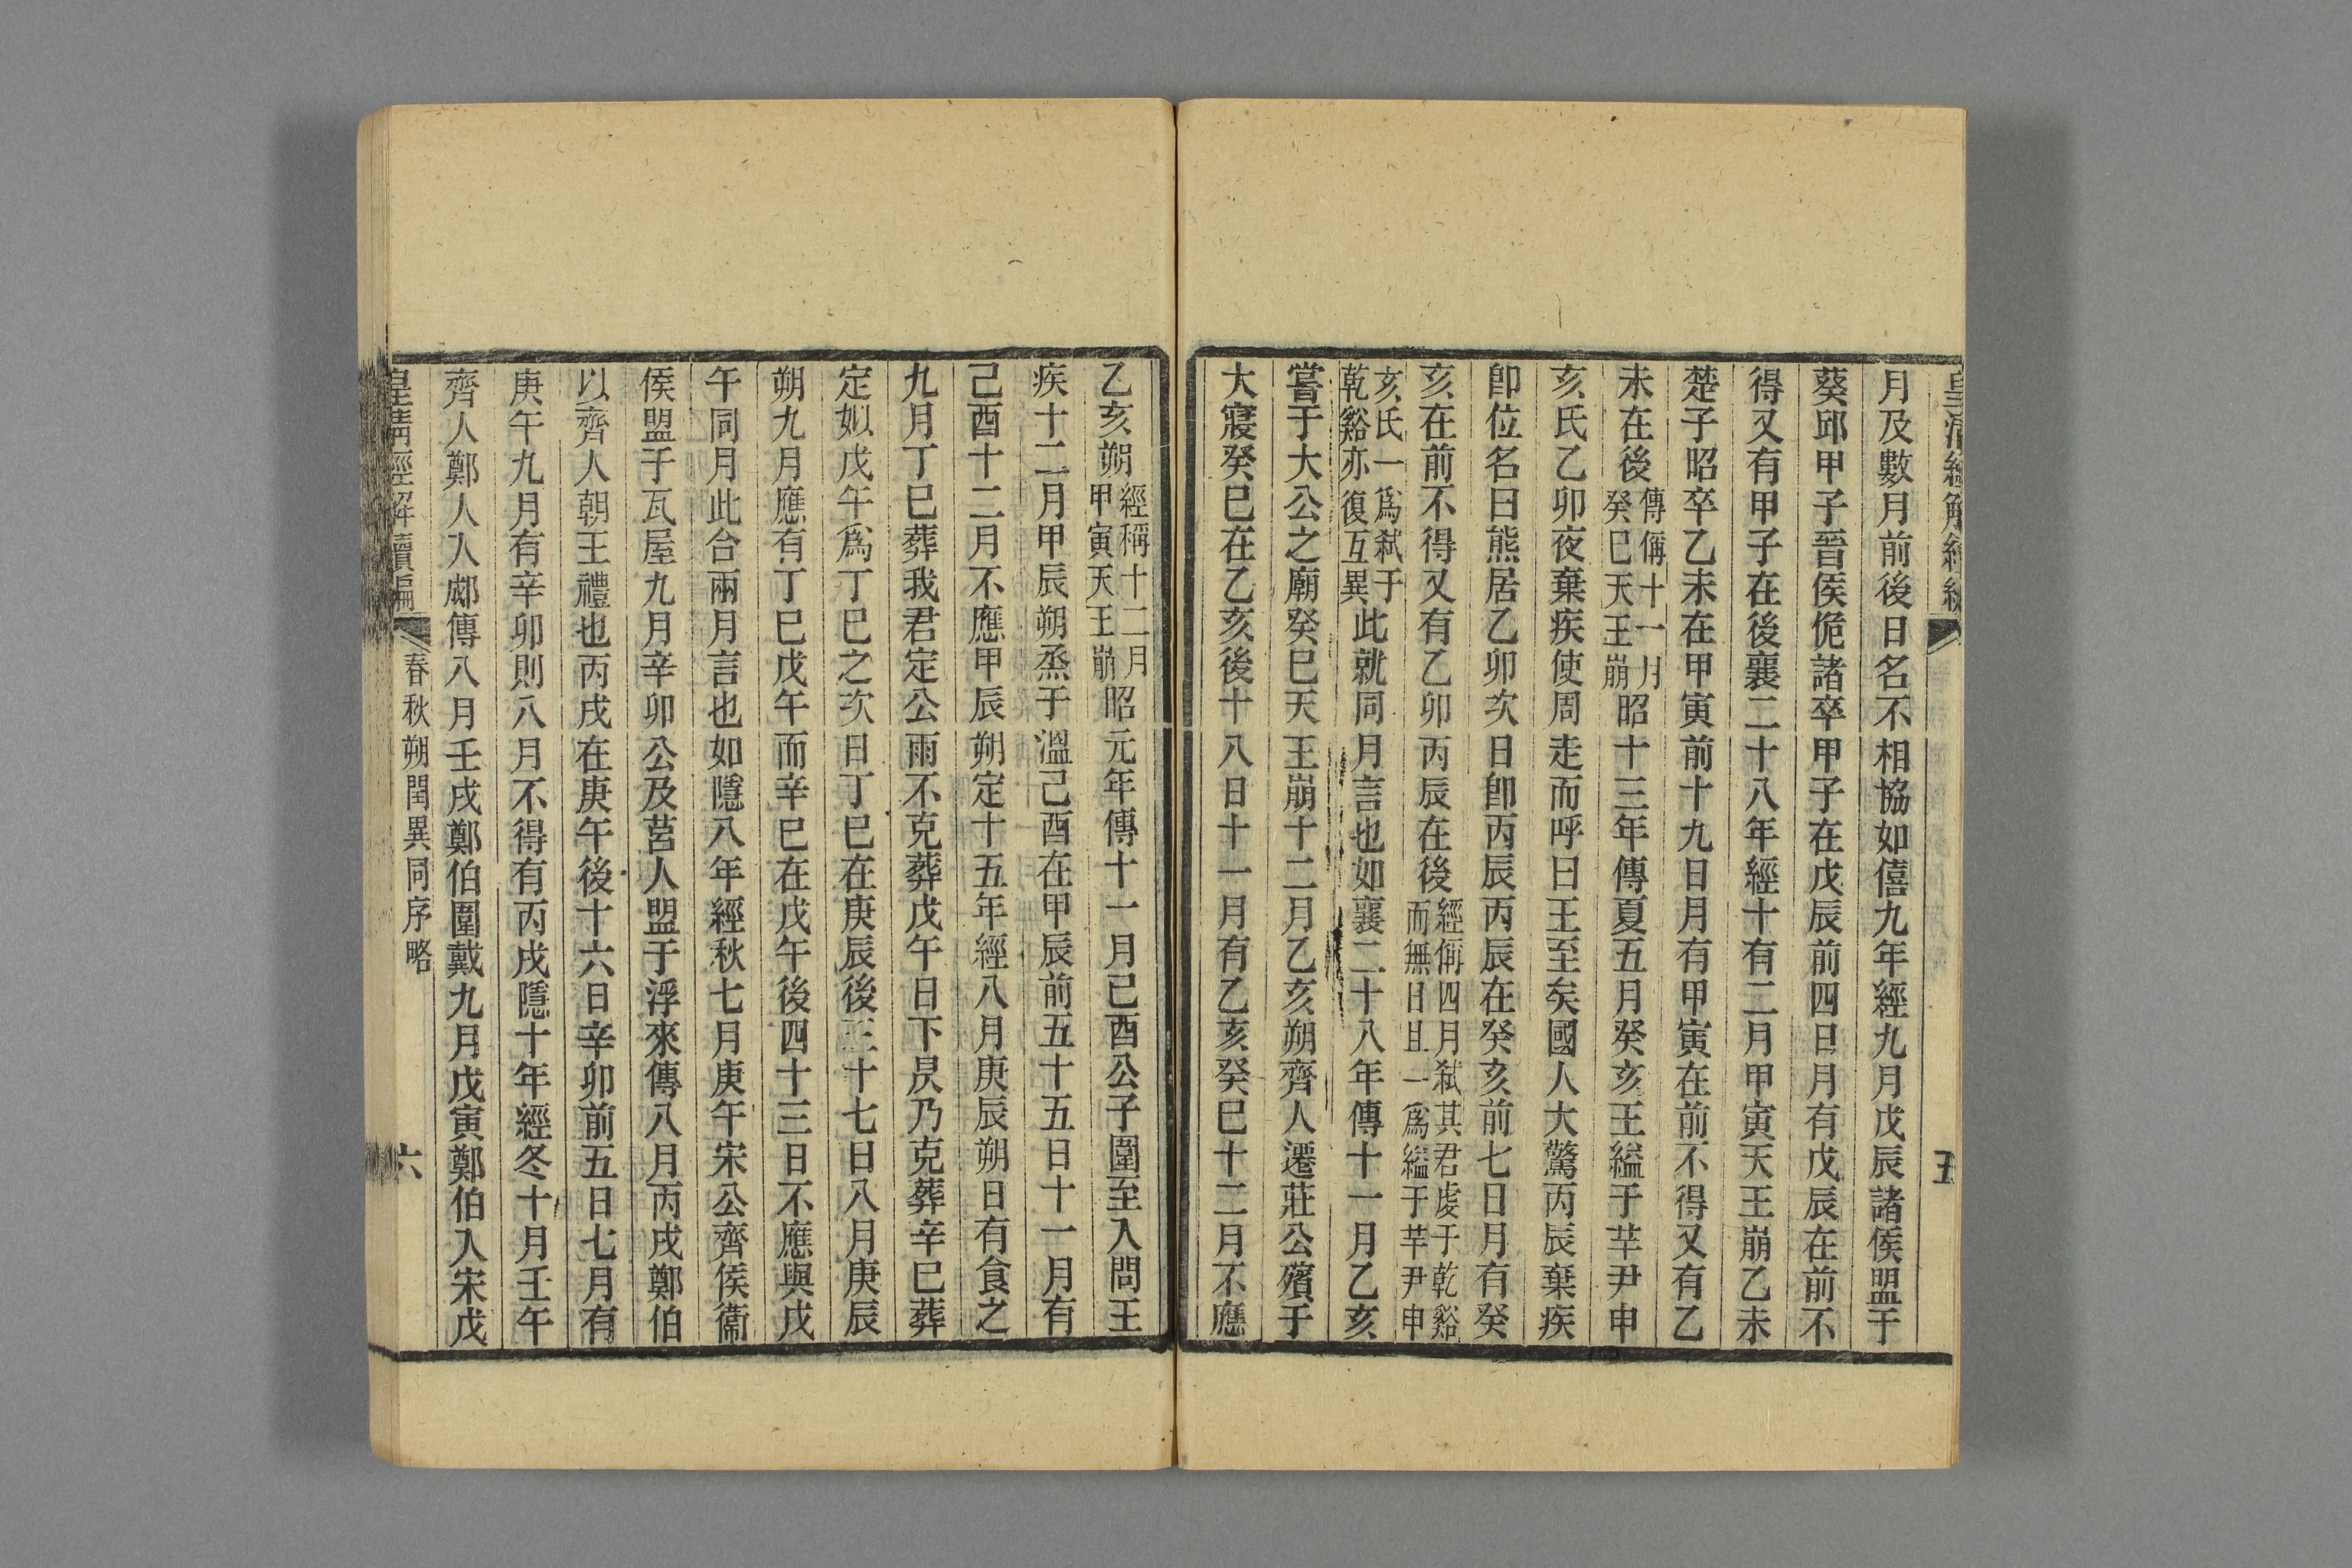 皇清經解續編
五
月及數月前後日名不相協如僖九年經九月戊辰諸侯盟于
葵邱甲子晉侯佹諸卒甲子在戊辰前四日月有戊辰在前不
得又有甲子在後襄二十八年經十有二月甲寅天王崩乙未
楚子昭卒乙未在甲寅前十九日月有甲寅在前不得又有乙
未在後傳偁十一月癸巳天王崩昭十三年傳夏五月癸亥王縊于芊尹申
亥氏乙卯夜棄疾使周走而呼曰王至矣國人大驚丙辰棄疾
卽位名曰熊居乙卯次日卽丙辰丙辰在癸亥前七日月有癸
亥在前不得又有乙卯丙辰在後經偁四月弒其君虔于乾谿而無日且一爲縊于芊尹申
亥氏一爲弒于乾谿亦復互異此就同月言也如襄二十八年傳十一月乙亥
嘗于大公之廟癸巳天王崩十二月乙亥朔齊人遷莊公殯于
大寢癸巳在乙亥後十八日十一月有乙亥癸巳十二月不應
乙亥朔經稱十二月甲寅天王崩昭元年傳十一月己酉公子圍至入問王
疾十二月甲辰朔烝于溫己酉在甲辰前五十五日十一月有
己酉十二月不應甲辰朔定十五年經八月庚辰朔日有食之
九月丁巳葬我君定公雨不克葬戊午日下昃乃克葬辛巳葬
定姒戊午爲丁巳之次日丁巳在庚辰後三十七日八月庚辰
朔九月應有丁巳戊午而辛巳在戊午後四十三日不應與戊
午同月此合兩月言也如隱八年經秋七月庚午宋公齊侯衞
侯盟于瓦屋九月辛卯公及莒人盟于浮來傳八月丙戌鄭伯
以齊人朝王禮也丙戌在庚午後十六日辛卯前五日七月有
庚午九月有辛卯則八月不得有丙戌隱十年經冬十月壬午
齊人鄭人入郕傳八月壬戌鄭伯圍戴九月戊寅鄭伯入宋戊
皇清經解續編
春秋朔閏異同序略
六